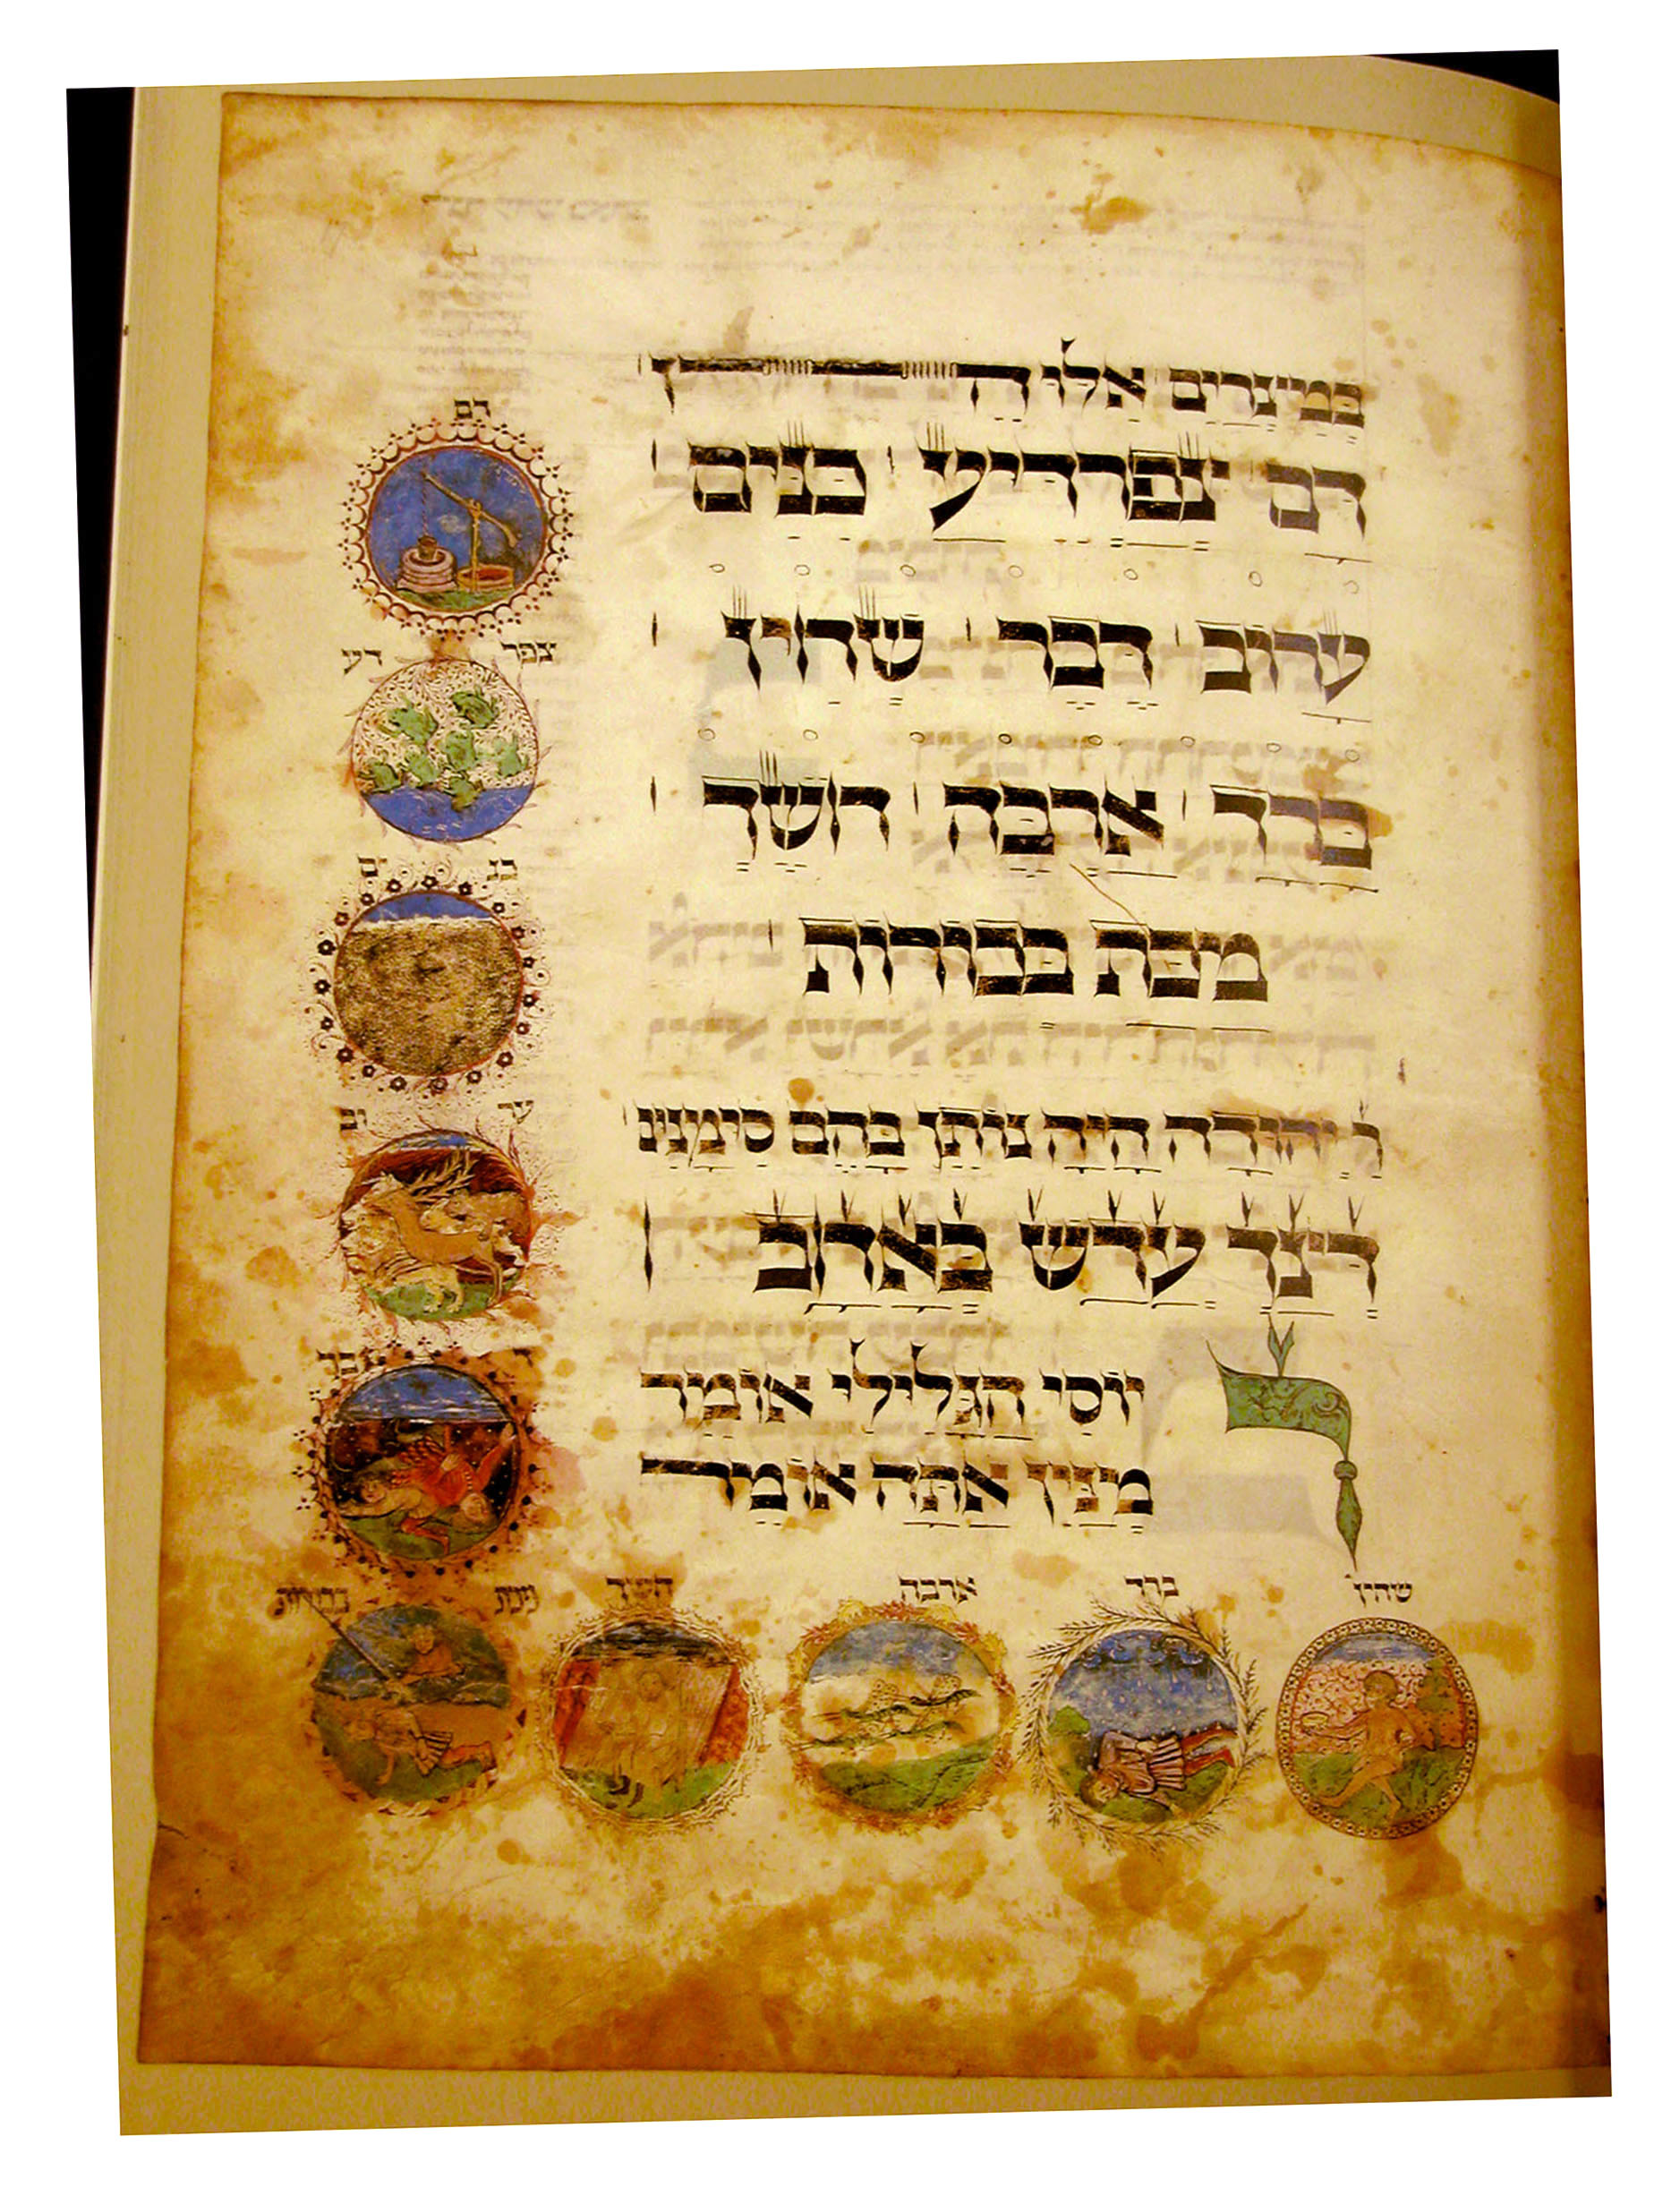 בְּמִיצְרַיִם אֵלוּ הֵן
דָּם צְפַרְדֵּיעַ כִּנִּים
עָרוֹב דֶּבֶר שְׁחִין
בָּרָד אַרְבֶּה חוֹשֶׁךְ
מכת בְּכוֹרוֹת
ר יְהוּדָה הָיָה נוֹתֵן בָּהֶם סִימָנִין
דְּצַךְ עֲדַשׁ בְּאַחַב
ר יוֹסֵי הַגְּלִילִי אוֹמֵר
מִנַּיִן אַתָּה אוֹמֵר
דם
צפר דע
כנ ים
ער וב
ד בר
שחין
ברד
ארבה
חשך
מכת בכורות